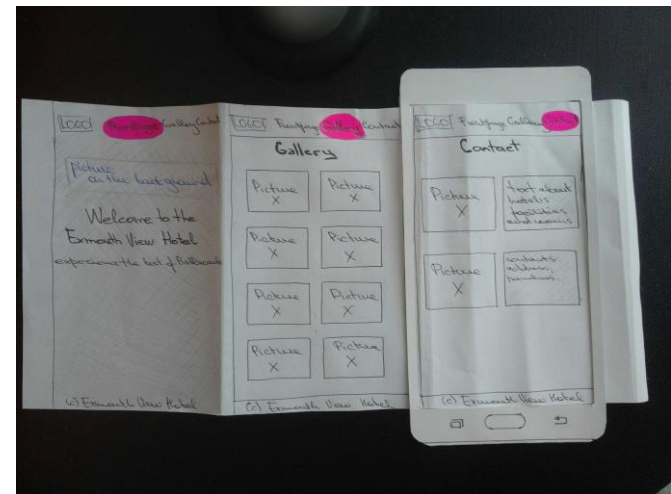 LOGO Frontpage Gallery Contact
picture
on the background
Welcome to the
Exmouth View Hotel
experience the best of
(c) Exmouth View Hotel
LOGO Frontpage Gallery Contact
Gallery
Picture X Picture X
Picture X Picture X
Picture X Picture X
Picture X Picture X
(c) Exmouth View Hotel
LOGO Frontpage Gallery
Contact
Picture X
text about
hotels
facilities
and rooms
Picture X
contacts:
address,
numbers.
(c) Exmouth View Hotel